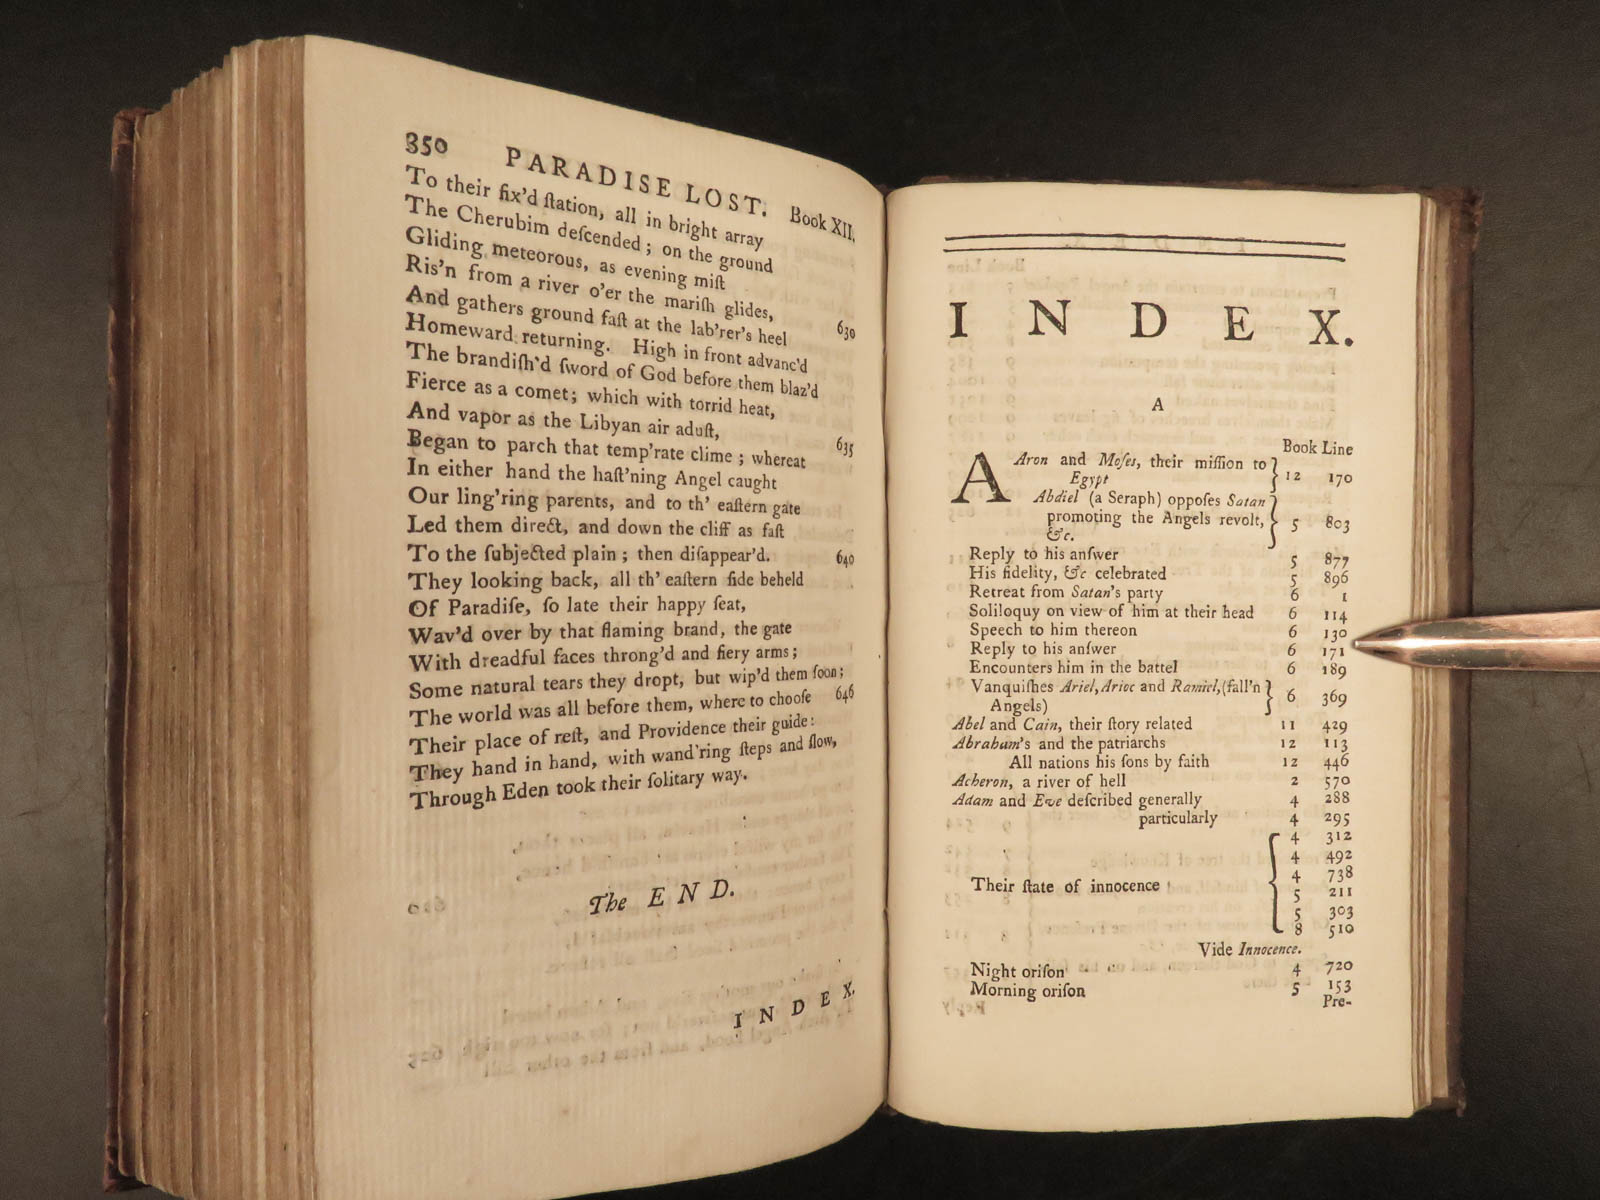 350 PARADISE LOST. Book XII.
To their fix'd ſtation, all in bright array
The Cherubim deſcended; on the ground
Gliding meteorous, as evening miſt
Ris'n from a river o'er the mariſh glides,
And gathers ground faſt at the lab'rer's heel 630
Homeward returning. High in front advanc'd
The brandiſh'd ſword of God before them blaz'd
Fierce as a comet; which with torrid heat,
And vapor as the Libyan air aduſt,
Began to parch that temp'rate clime; whereat 635
In either hand the haſt'ning Angel caught
Our ling'ring parents, and to th' eaſtern gate
Led them direct, and down the cliff as faſt
To the ſubjected plain; then diſappear'd. 640
They looking back, all th' eaſtern ſide beheld
Of Paradiſe, ſo late their happy ſeat,
Wav'd over by that flaming brand, the gate
With dreadful faces throng'd and fiery arms;
Some natural tears they dropt, but wip'd them ſoon;
The world was all before them, where to chooſe 646
Their place of reſt, and Providence their guide:
They hand in hand, with wand'ring ſteps and ſlow,
Through Eden took their ſolitary way.
The END.
INDEX.
INDEX.
A
Book Line
AAron and Moſes, their miſſion to
Egypt 12 170
Abdiel (a Seraph) oppoſes Satan
promoting the Angels revolt, 5 803
&c.
Reply to his anſwer 5 877
His fidelity, &c celebrated 5 896
Retreat from Satan's party 6 1
Soliloquy on view of him at their head 6 114
Speech to him thereon 6 130
Reply to his anſwer 6 171
Encounters him in the battel 6 189
Vanquiſhes Ariel, Arioc and Ramiel, (fall'n
Angels) 6 369
Abel and Cain, their ſtory related 11 429
Abraham's and the patriarchs 12 113
All nations his ſons by faith 12 446
Acheron, a river of hell 2 570
Adam and Eve deſcribed generally 4 288
particularly 4 295
4 312
4 492
4 738
Their ſtate of innocence 5 211
5 303
8 510
Vide Innocence.
Night oriſon 4 720
Morning oriſon 5 153
Pre-